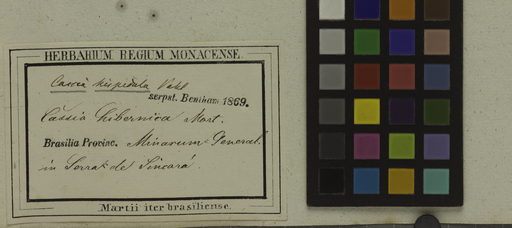 HERBARIUM REGIUM MONACENSE.
Cassia hispidula Vahl
scrpst. Bentham 1869.
Cassia hibernica Mart.
Brasilia Provinc. Minarum General.
in Serra de Sincorá.
Martii iter brasiliense.